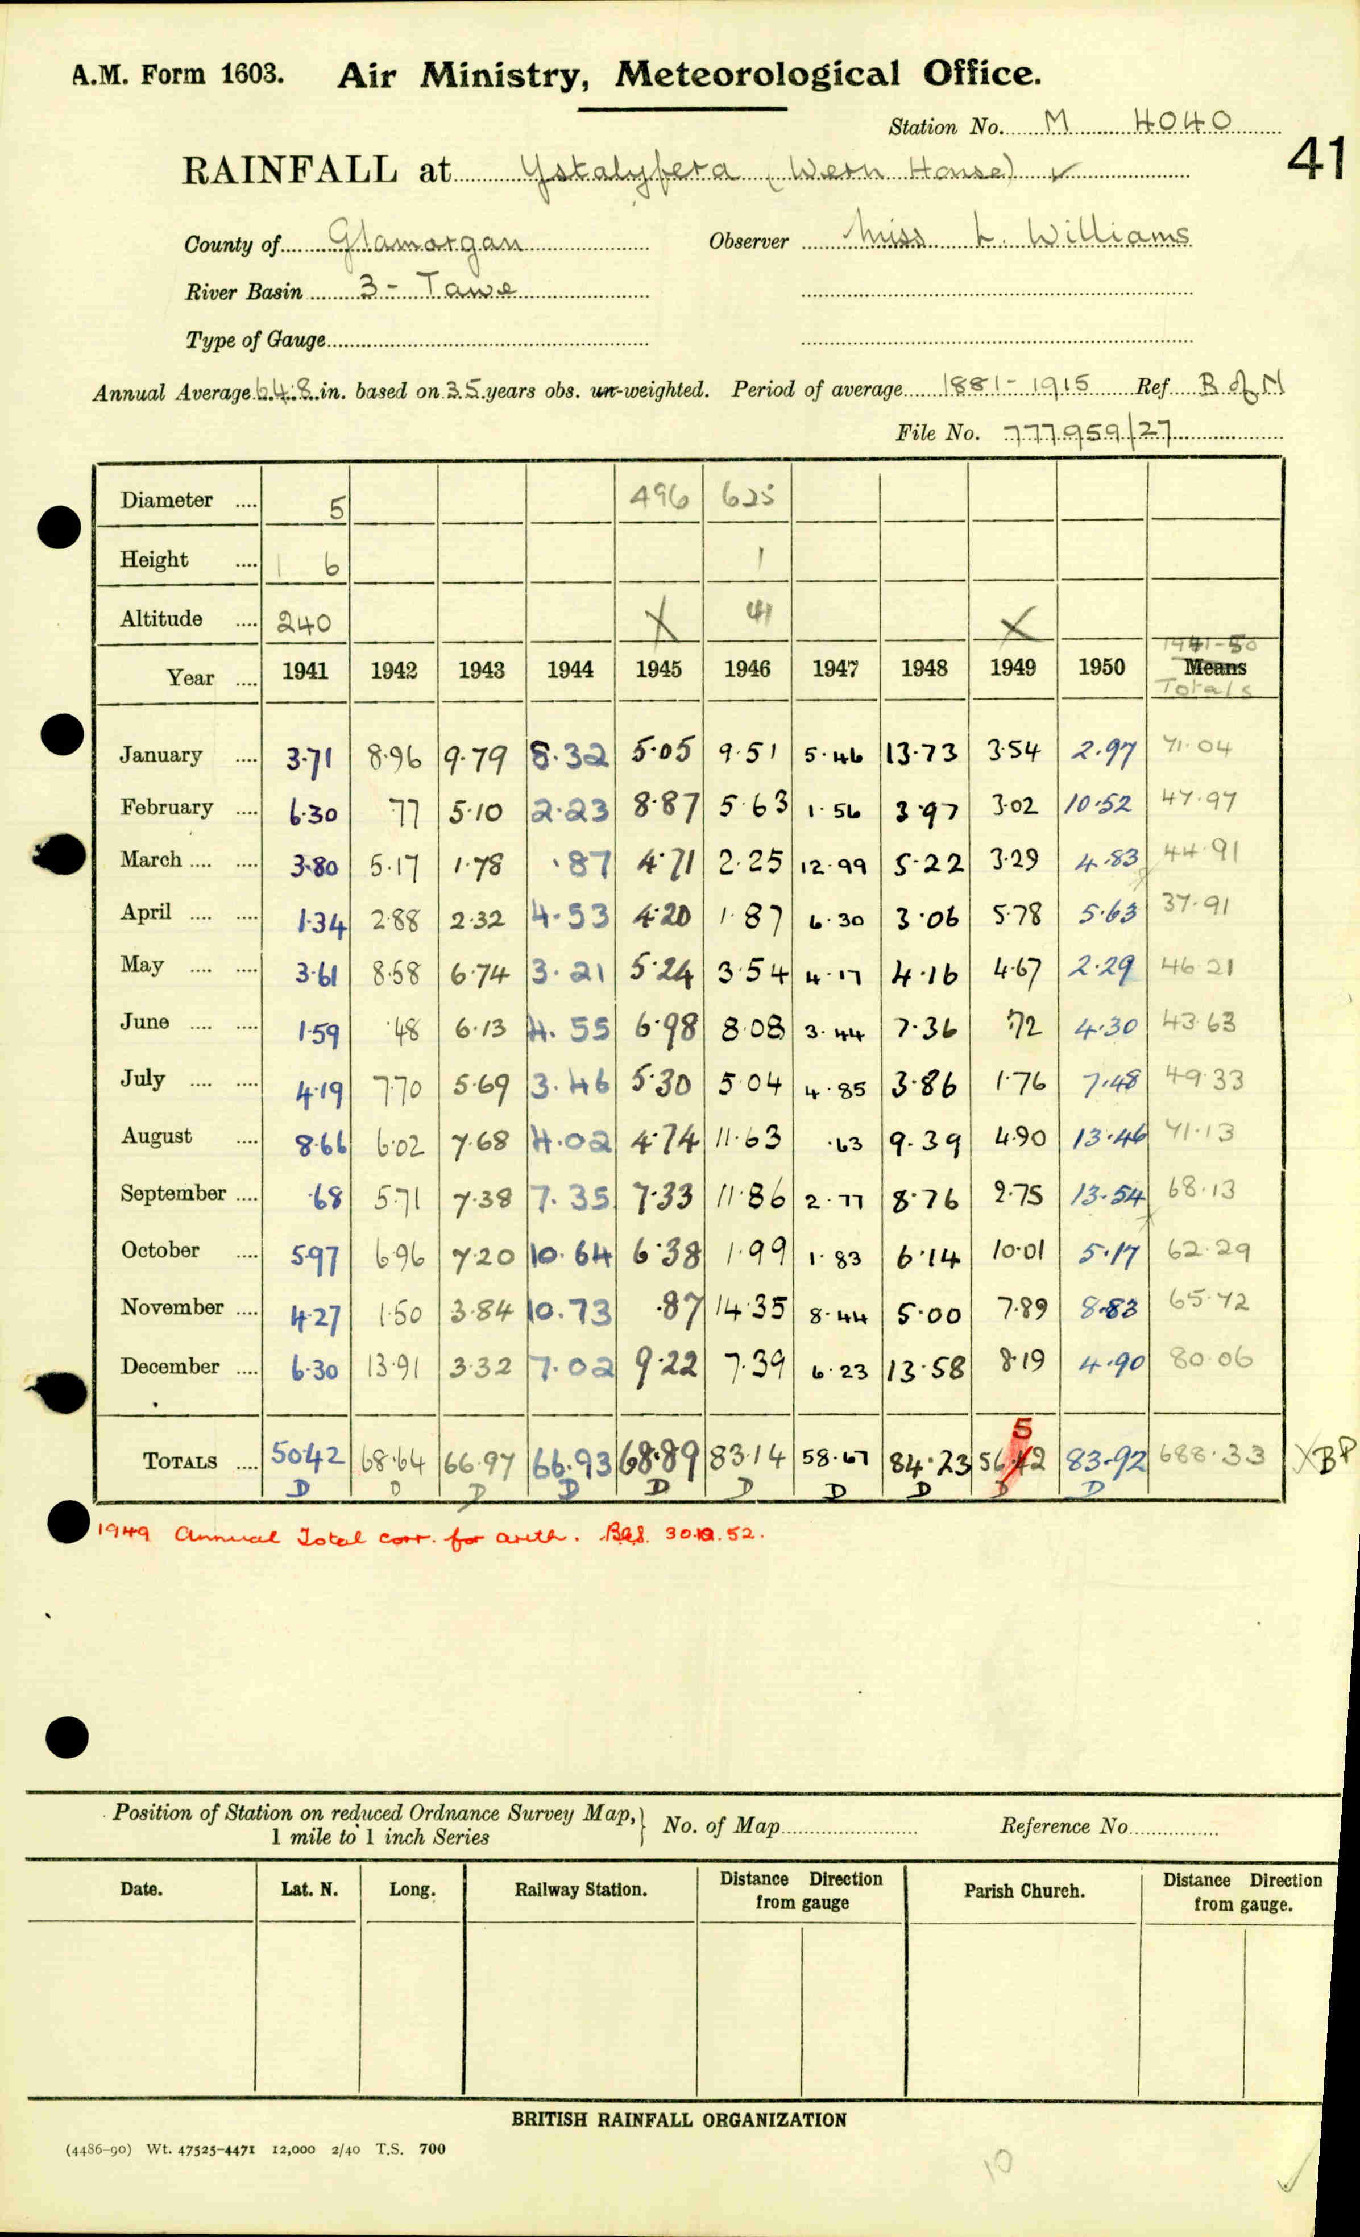 A.M. Form 1603. Air Ministry, Meteorological Office.
Station No. M 4040
41
RAINFALL at Ystalyfera (Wern House) ✓
County of Glamorgan Observer Miss L. Williams
River Basin 3 - Tawe
Type of Gauge
Annual Average 64.8 in. based on 35 years obs. un-weighted. Period of average 1881-1915 Ref B of N
File No. 777959/27
Diameter .... 5 496 625
Height .... 1 6 1
Altitude .... 240 X 41 X
1941-50
Year .... 1941 1942 1943 1944 1945 1946 1947 1948 1949 1950 Means
Totals
January .... 3.71 8.96 9.79 8.32 5.05 9.51 5.46 13.73 3.54 2.97 71.04
February .... 6.30 .77 5.10 2.23 8.87 5.63 1.56 3.97 3.02 10.52 47.97
March .... .... 3.80 5.17 1.78 .87 4.71 2.25 12.99 5.22 3.29 4.83 44.91
April .... .... 1.34 2.88 2.32 4.53 4.20 1.87 6.30 3.06 5.78 5.63 37.91
May .... .... 3.61 8.58 6.74 3.21 5.24 3.54 4.17 4.16 4.67 2.29 46.21
June .... .... 1.59 .48 6.13 4.55 6.98 8.08 3.44 7.36 .72 4.30 43.63
July .... .... 4.19 7.70 5.69 3.46 5.30 5.04 4.85 3.86 1.76 7.48 49.33
August .... 8.66 6.02 7.68 4.02 4.74 11.63 .63 9.39 4.90 13.46 71.13
September .... .68 5.71 7.38 7.35 7.33 11.86 2.77 8.76 2.75 13.54 68.13
October .... 5.97 6.96 7.20 10.64 6.38 1.99 1.83 6.14 10.01 5.17 62.29
November .... 4.27 1.50 3.84 10.73 .87 14.35 8.44 5.00 7.89 8.83 65.72
December .... 6.30 13.91 3.32 7.02 9.22 7.39 6.23 13.58 8.19 4.90 80.06
5
TOTALS .... 50.42 68.64 66.97 66.93 68.89 83.14 58.67 84.23 56.42 83.92 688.33 X BP
D D D D D D D D D D
1949 Annual Total corr. for arith. 52.
Position of Station on reduced Ordnance Survey Map, } No. of Map Reference No.
1 mile to 1 inch Series
Date. Lat. N. Long. Railway Station. Distance Direction from gauge Parish Church. Distance Direction from gauge.
BRITISH RAINFALL ORGANIZATION
(4486-90) Wt. 47525-4471 12,000 2/40 T.S. 700
10 ✓